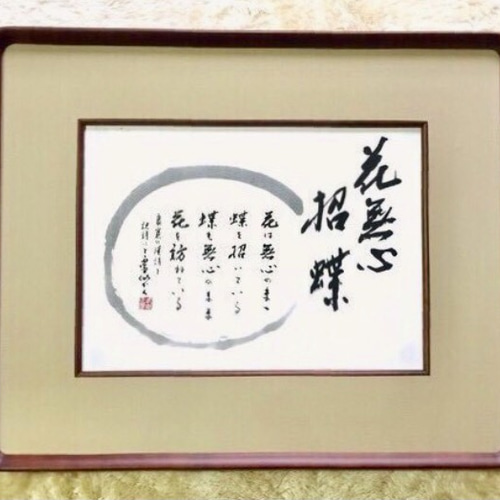 花無心
招蝶
花は無心のまま
蝶を招いている
蝶も無心のまま
花を訪れている
良寛の漢詩を